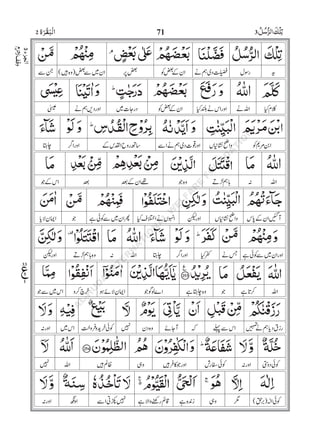 تِلْكَ الرُّسُلُ ٣ 71 اَلْبَقَرَة ٢
تِلْكَ الرُّسُلُ فَضَّلْنَا بَعْضَهُمْ عَلٰى بَعْضٍ ۘ مِنْهُمْ مَّنْ
یہ رسول فضیلت دی ہم نے ان کے بعض کو پر بعض ان میں سے بعض (وہ ہیں) جن سے
كَلَّمَ اللّٰهُ وَرَفَعَ بَعْضَهُمْ دَرَجٰتٍ ؕ وَاٰتَيْنَا عِيْسَى
کلام کیا اللہ نے اور اس نے بلند کیا ان کے بعض کو درجات میں اور دیں ہم نے عیسیٰ
ابْنَ مَرْيَمَ الْبَيِّنٰتِ وَاَيَّدْنٰهُ بِرُوْحِ الْقُدُسِ ؕ وَلَوْ شَآءَ
ابن مریم کو واضح نشانیاں اور قوت دی ہم نے اسے ساتھ روح القدس کے اور اگر چاہتا
اللّٰهُ مَا اقْتَتَلَ الَّذِيْنَ مِنْۢ بَعْدِهِمْ مِّنْۢ بَعْدِ مَا
اللہ نہ باہم لڑتے وہ جو ان کے بعد تھے بعد اس کے جو
جَآءَتْهُمُ الْبَيِّنٰتُ وَلٰكِنِ اخْتَلَفُوْا فَمِنْهُمْ مَّنْ اٰمَنَ
آگئیں ان کے پاس واضح نشانیاں اور لیکن انہوں نے اختلاف کیا پھر ان میں سے کوئی ہے جو ایمان لایا
وَمِنْهُمْ مَّنْ كَفَرَ ؕ وَلَوْ شَآءَ اللّٰهُ مَا اقْتَتَلُوْا ۫ وَلٰكِنَّ
اور ان میں سے کوئی ہے جس نے کفر کیا اور اگر چاہتا اللہ نہ وہ باہم لڑتے اور لیکن
اللّٰهَ يَفْعَلُ مَا يُرِيْدُ ۝ يٰۤاَيُّهَا الَّذِيْنَ اٰمَنُوْۤا اَنْفِقُوْا مِمَّا
اللہ کرتا ہے جو وہ چاہتا ہے اے لوگو جو ایمان لائے ہو خرچ کرو اس میں سے جو
رَزَقْنٰكُمْ مِّنْ قَبْلِ اَنْ يَّاْتِيَ يَوْمٌ لَّا بَيْعٌ فِيْهِ وَلَا
رزق دیا ہم نے تمہیں اس سے پہلے کہ آ جائے وہ دن نہیں کوئی خرید و فروخت اس میں اور نہ
خُلَّةٌ وَّلَا شَفَاعَةٌ ؕ وَالْكٰفِرُوْنَ هُمُ الظّٰلِمُوْنَ ۝ اَللّٰهُ لَاۤ
کوئی دوستی اور نہ کوئی سفارش اور جو کافر ہیں وہی ظالم ہیں اللہ نہیں
اِلٰهَ اِلَّا هُوَ ۚ اَلْحَيُّ الْقَيُّوْمُ ۚ لَا تَاْخُذُهٗ سِنَةٌ وَّلَا
کوئی الٰہ (برحق) مگر وہی زندہ ہے قائم رکھنے والا ہے نہیں پکڑتی اسے اونگھ اور نہ